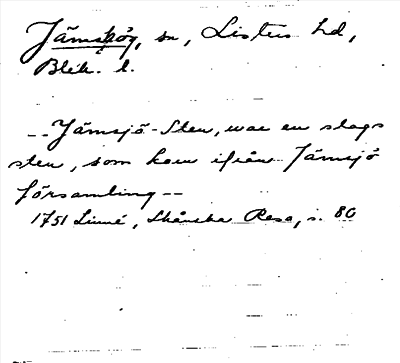 Jämshög, sn, Listers hd,
Blek. l.
-- Jämsjö-Sten, war en slags
sten, som kom ifrån Jämsjö
församling --
1751 Linné, Skånska Resa, s. 80